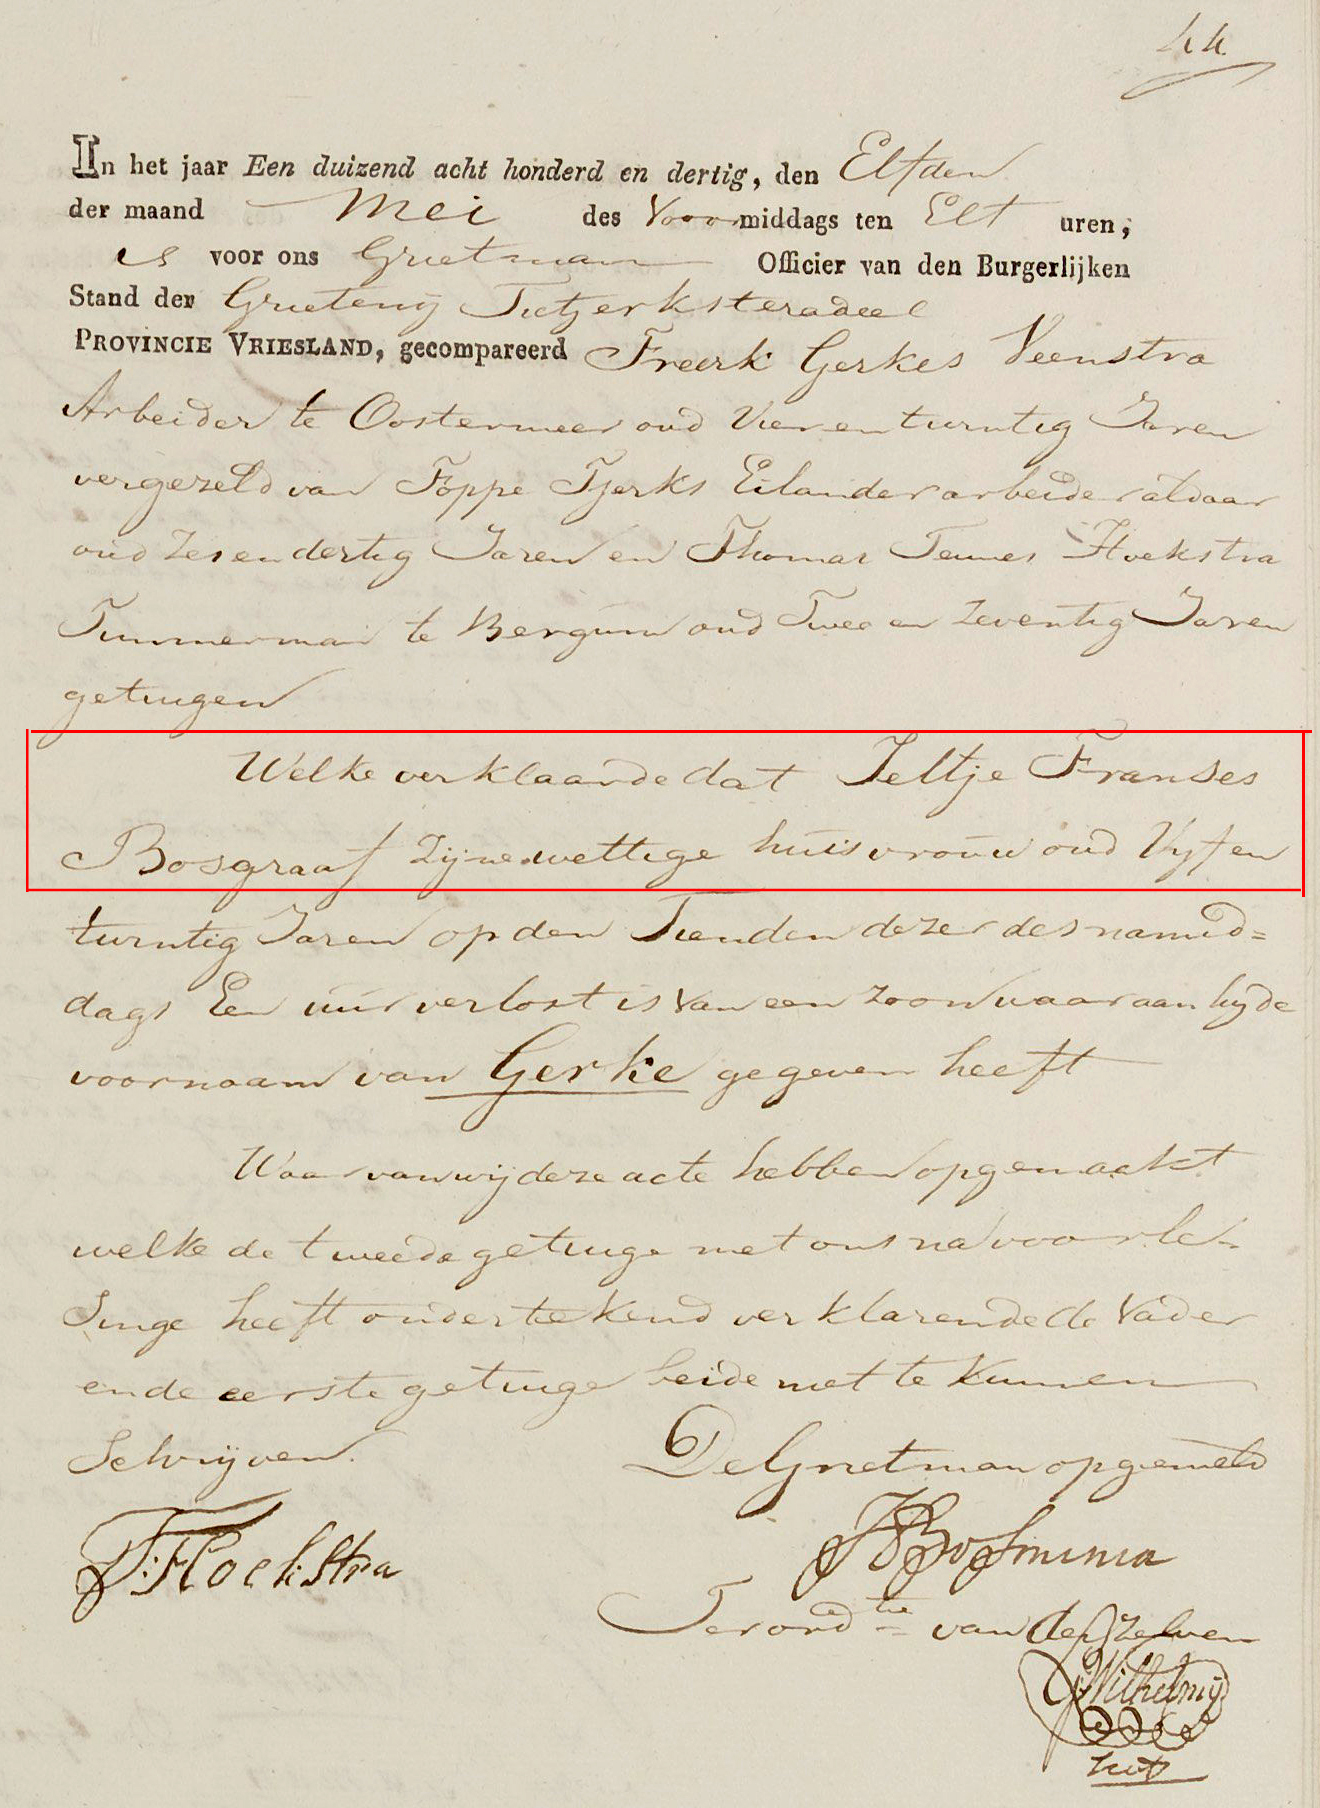 44
In het jaar Een duizend acht honderd en dertig, den Elfden
der maand Mei des Voormiddags ten Elf uren,
is voor ons Grietman Officier van den Burgerlijken
Stand der Grietenij Tietjerksteradeel
PROVINCIE VRIESLAND, gecompareerd Freerk Gerkes Veenstra
Arbeider te Oostermeer oud Vier en twintig Jaren
vergezeld van Foppe Tjerks Eilander arbeider aldaar
oud Zes en dertig Jaren en Thomas Teunes Hoekstra
Timmerman te Bergum oud Twee en Zeventig Jaren
getuigen
Welke verklaarde dat Jeltje Franses
Bosgraaf Zijne wettige huisvrouw oud Vyf en
twintig Jaren op den Tienden dezer des namid=
dags Een uur verlost is van een zoon waar aan hy de
voornaam van Gerke gegeven heeft
Waar van wij deze acte hebben opgemaakt
welke de tweede getuige met ons na voorle-
singe heeft ondertekend verklarende de Vader
en de eerste getuige beide niet te kunnen
Schrijven.
De Grietman opgemeld
T: Hoekstra
Ter ord tie van dezelven
Wilhelmij